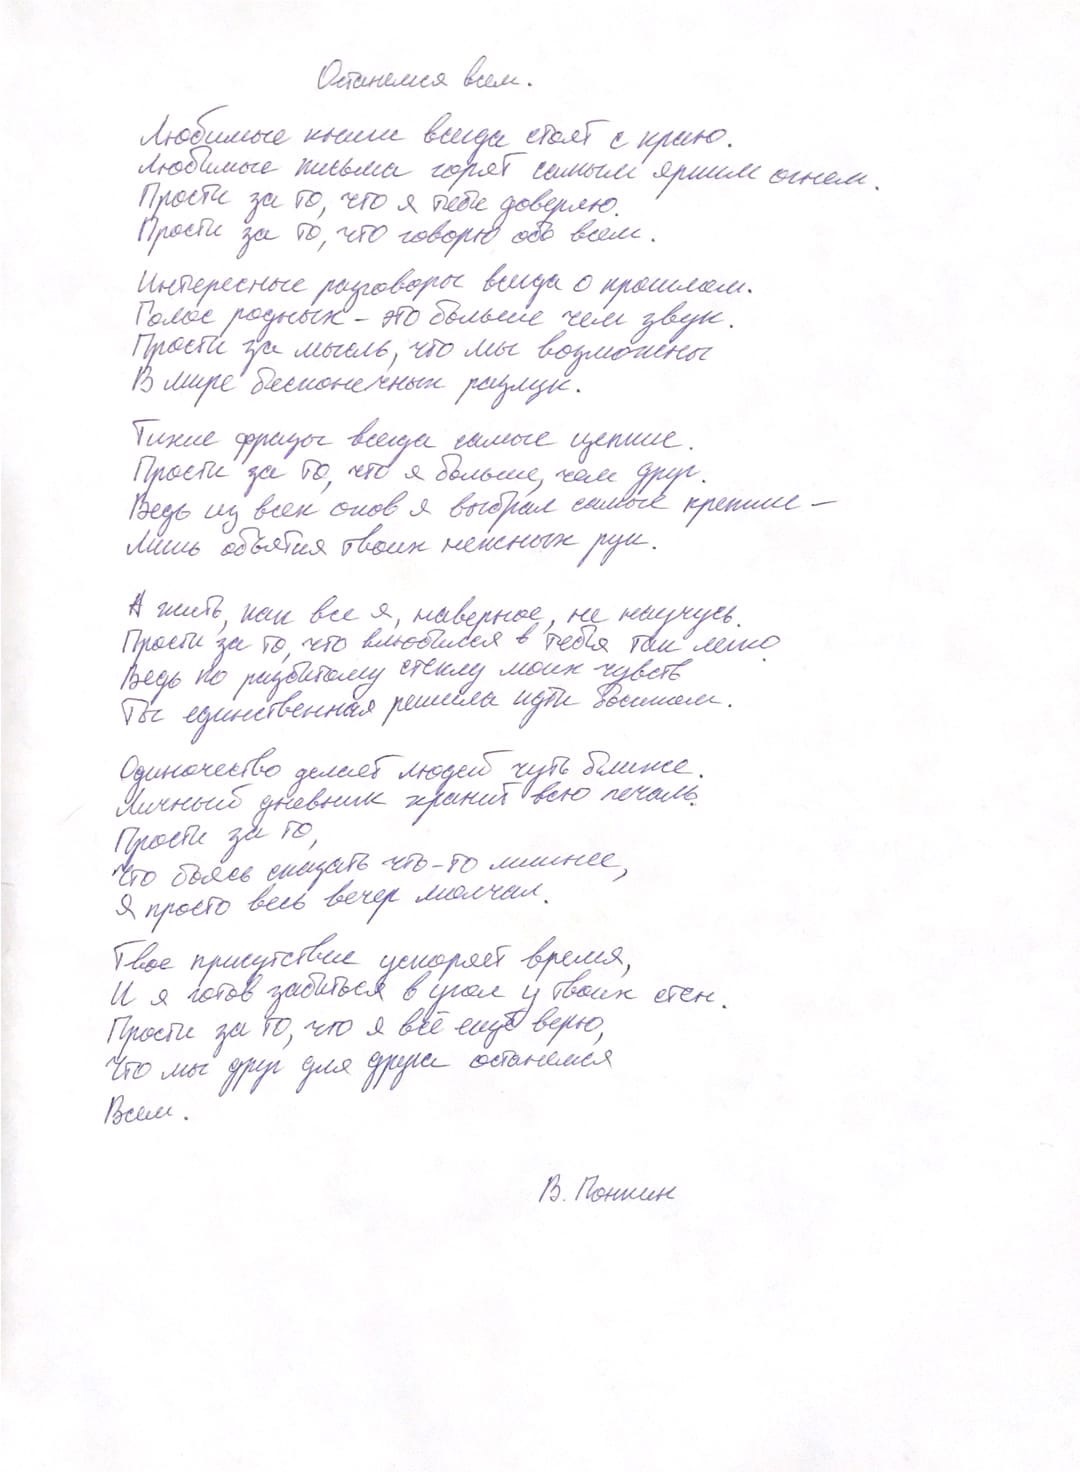 Останемся всем.
Любимые книги всегда стоят с краю.
Любимые письма горят самым ярким огнем.
Прости за то, что я тебе доверяю.
Прости за то, что говорю обо всем.
Интересные разговоры всегда о прошлом.
Голос родных – это больше чем звук.
Прости за мысль, что мы возможны
В мире бесконечных разлук.
Тихие фразы всегда самые цепкие.
Прости за то, что я больше, чем друг.
Ведь из всех оков я выбрал самые крепкие –
Лишь объятия твоих нежных рук.
А жить, как все я, наверное, не научусь.
Прости за то, что влюбился в тебя так легко
Ведь по разбитому стеклу моих чувств
Ты единственная решила идти босиком.
Одиночество делает людей чуть ближе.
Личный дневник хранит всю печаль.
Прости за то,
Что боясь сказать что-то лишнее,
Я просто весь вечер молчал.
Твое присутствие ускоряет время,
И я готов забиться в угол у твоих стен.
Прости за то, что я всё ещё верю,
Что мы друг для друга останемся
Всем.
В. Понкин